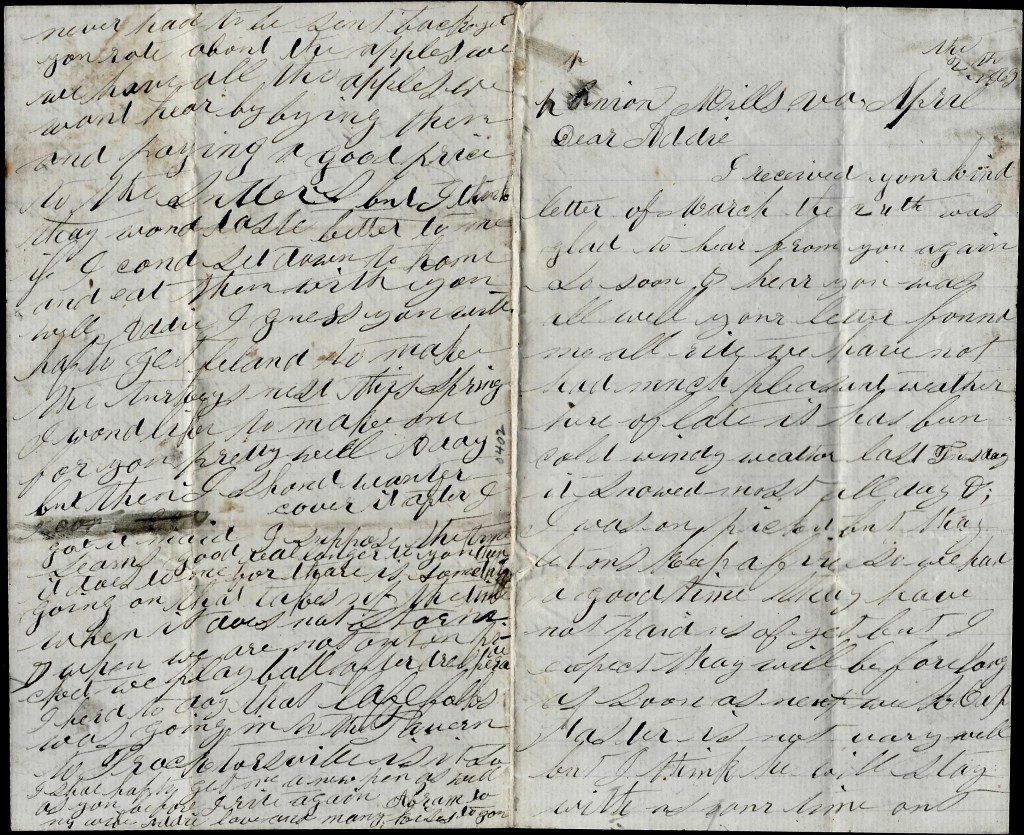 never had to be sent back
you rote about the apples we
we have all the apples we
want hear by bying them
and paying a good price
to the Sutlers but I think
thay woud taste better to me
if I coud set down to home
and eat them with you
well Addie I guess you will
haf to get Leland to make
the turkeys nest this Spring
I woud like to make one
for you pretty well I say
but then I shoud want
cover it after I
got it maid I suppose the time
seams a good deal longer to you than
it does to me for thare is something
going on that takes up the time
when it does not storm
& when we are not on
we play ball after dress
I herd to day that folks
was going in to the Tavern
to Procktorsville is it so
I shal hafty get me a new pen as well
as you before I rite again
my wife Addie love and many kisses to you
0402
the
Union Mills va. April
Dear Addie
I received your kind
letter of March the was
glad to hear from you again
so soon & hear you was
all well your letter found
me all rite we have not
had much pleasant weather
here of late it has bun
cold windy weather last Tusday
it snowed most all day &
I was on picket but thay
let ous keep a fire so we had
a good time thay have
not paid us of yet but I
expect thay will before long
as soon as next week Cap
is not vary well
but I think he will stay
with us your time out